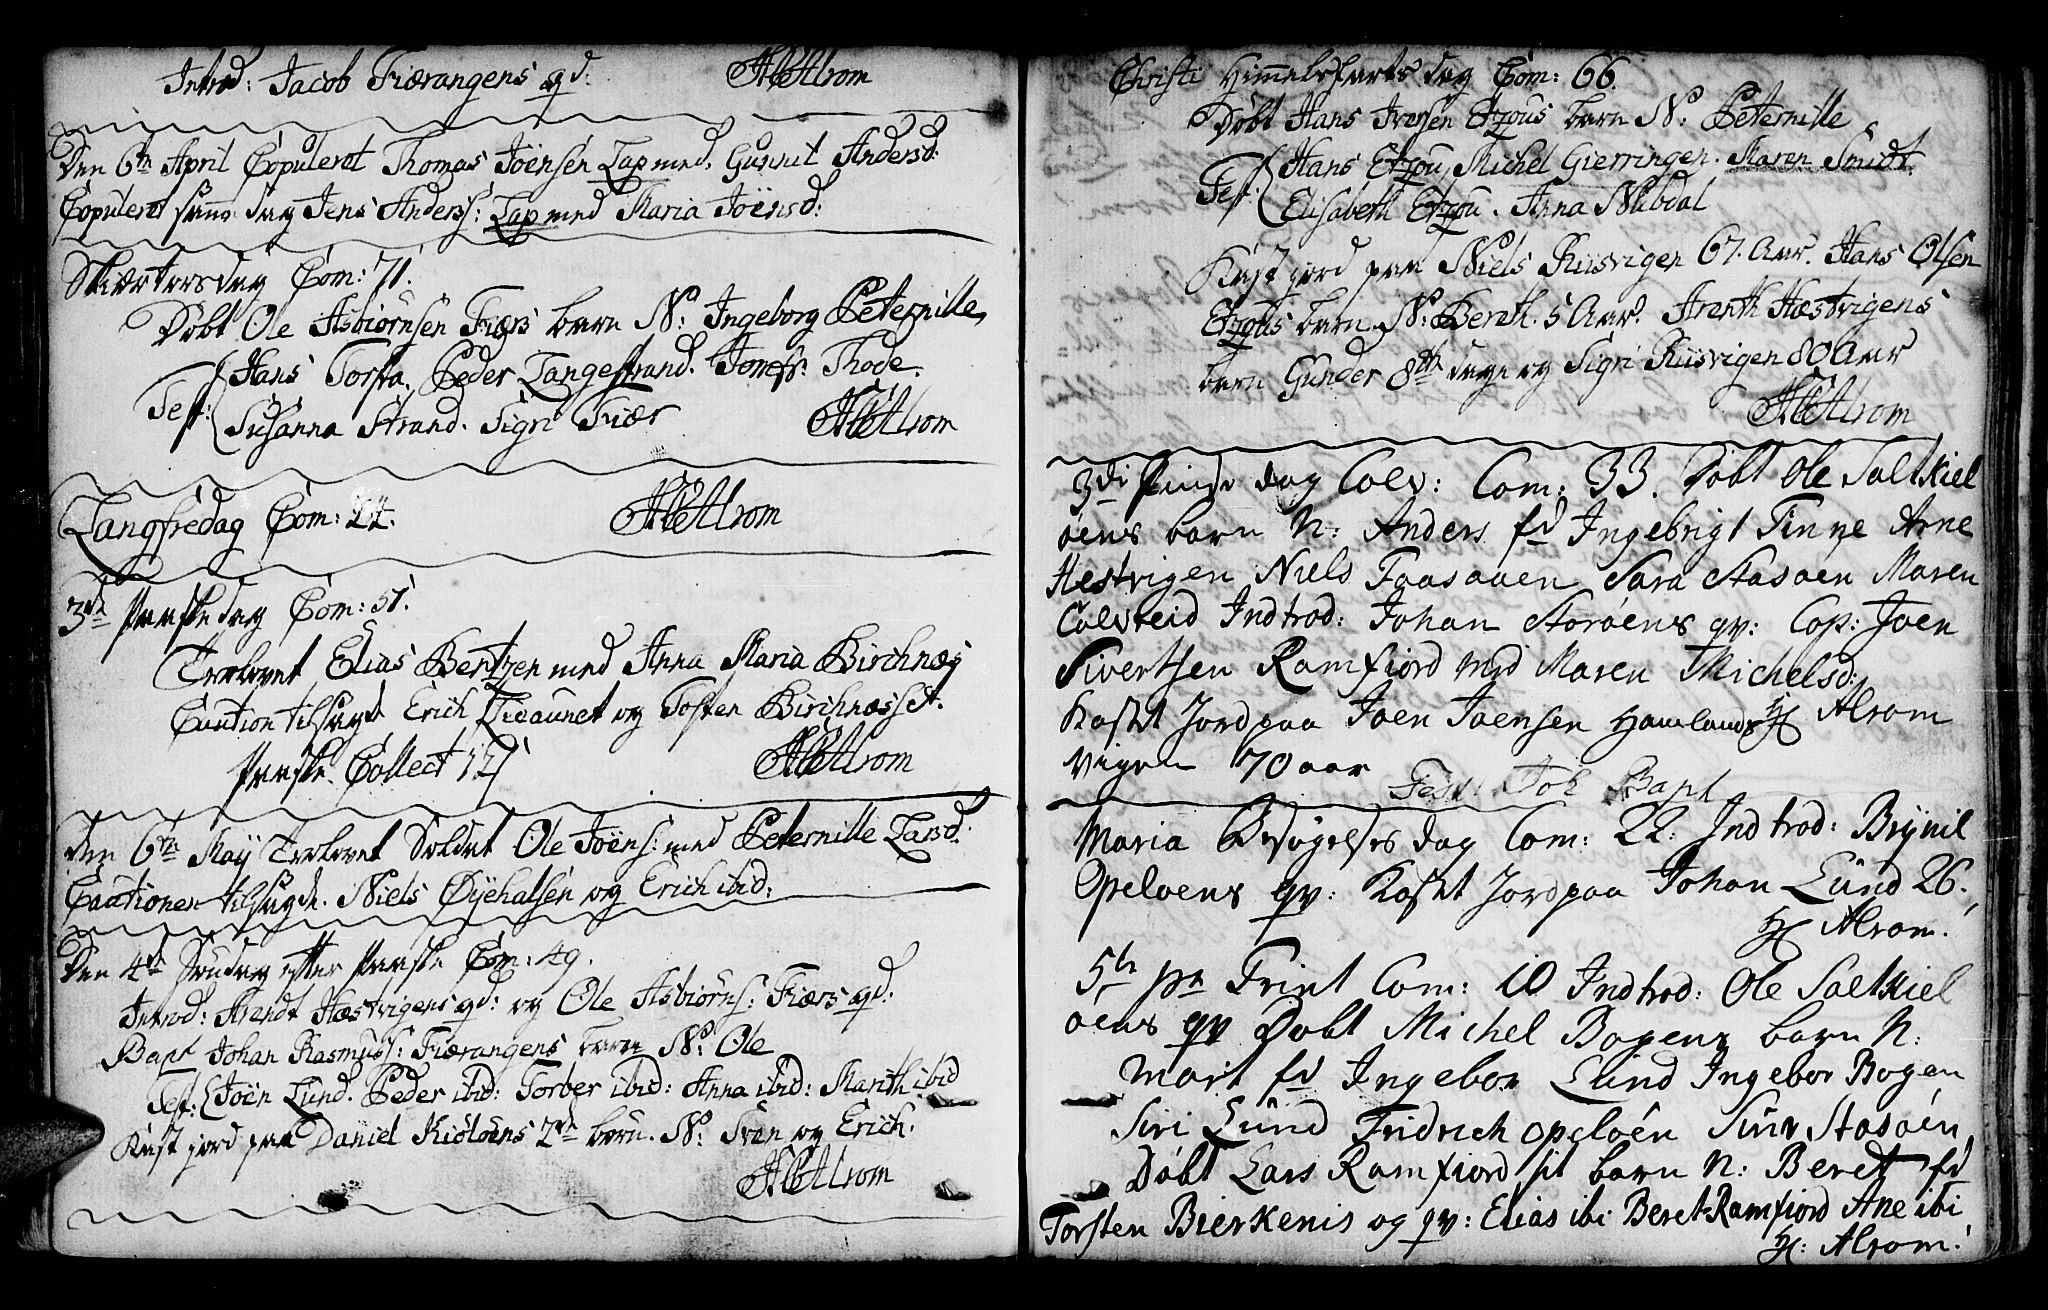 Introd: Jacob Fiærangens qd: HCAlrom
Den 6te April Copuleret Thomas Joensen Lap med Gunnil Andersd:
Copuleret samme dag Jens Anderss: Lap med Maria Joensd:
Skiærtorsdag Com: 71.
Døbt Ole Asbiörnsen Fiærs barn N: Ingeborg Peternille
Test: Hans Torsta. Peder Langestrand. Jomfr: Thode.
Susanna Strand. Sigri Fiær HCAlrom
Langfredag Com: 24. HCAlrom
3die Paaskedag Com: 51.
Trolovet Elias Bentzen med Anna Maria Birchnæs
Caution tilsagde Erich Liaunet og Tosten Birchnæsset.
Paaske Collect HCAlrom
Den 6te Maÿ Trolovet Soldat Ole Joëns: med Peternille Larsd:
Cautionen tilsagde Niels Øÿehalsen og Erich ibid:
Den 4de Søndag efter Paaske Com: 49.
Introd: Arendt Hæstvigens qd: og Ole Asbiörns: Fiærs qd:
Bapt Johan Rasmuss: Fiærangens barn N: Ole
Test: Joën Lund. Peder ibid: Torber ibid: Anna ibid: Marith ibid
Kast jord paa Daniel Kiöloens 2de børn. N: Sven og Erich.
HCAlrom
Christi Himmelfarts dag Com: 66.
Døbt Hans Iversen Etzøus barn N: Peternille
Test: Hans Etzøu, Michel Gierringen. Maren Smidt.
Elisabeth Etzøu. Anna Nubdal
Kast jord paa Niels Kusvigen 67. Aar. Hans Olsen
Etzøus barn N: Bereth. 5 Aar. Arenth Hæstvigens
barn Gunder 8te dage og Sigri Kusvigen 80 Aar
HCAlrom
3die Pindse dag Colv: Com: 33. Døbt Ole Saltkiel
øens barn N: Anders fd Ingebrigt Finne Arne
Hestvigen Niels Faasøaen Sara Stasøen Maren
Colvreid Indtrod: Johan Storøens qv: Cop: Joen
Sivertsen Ramfiord med Maren Michelsd:
Kastet Jord paa Joen Joensen Hamlands H Alrom
vigen 70 aar
Fest: Joh Bapt
Maria Besøgelses dag Com: 22: Indtrod: Brÿnil
Opeløens qv: Kastet Jord paa Johan Lund 26.
H Alrom.
5te p Trint Com: 10 Indtrod: Ole Saltkiel
øens qv Døbt Michel Bogens barn N:
Marit fd Ingebor Lund Ingebor Bogen
Siri Lund Fridrich opeløen Stasøen
Døbt Lars Ramfiord sit barn N: Beret fd
Torsten Bierkenis og qv: Elias ibi Beret Ramfiord Ane ibi
H: Alrom.